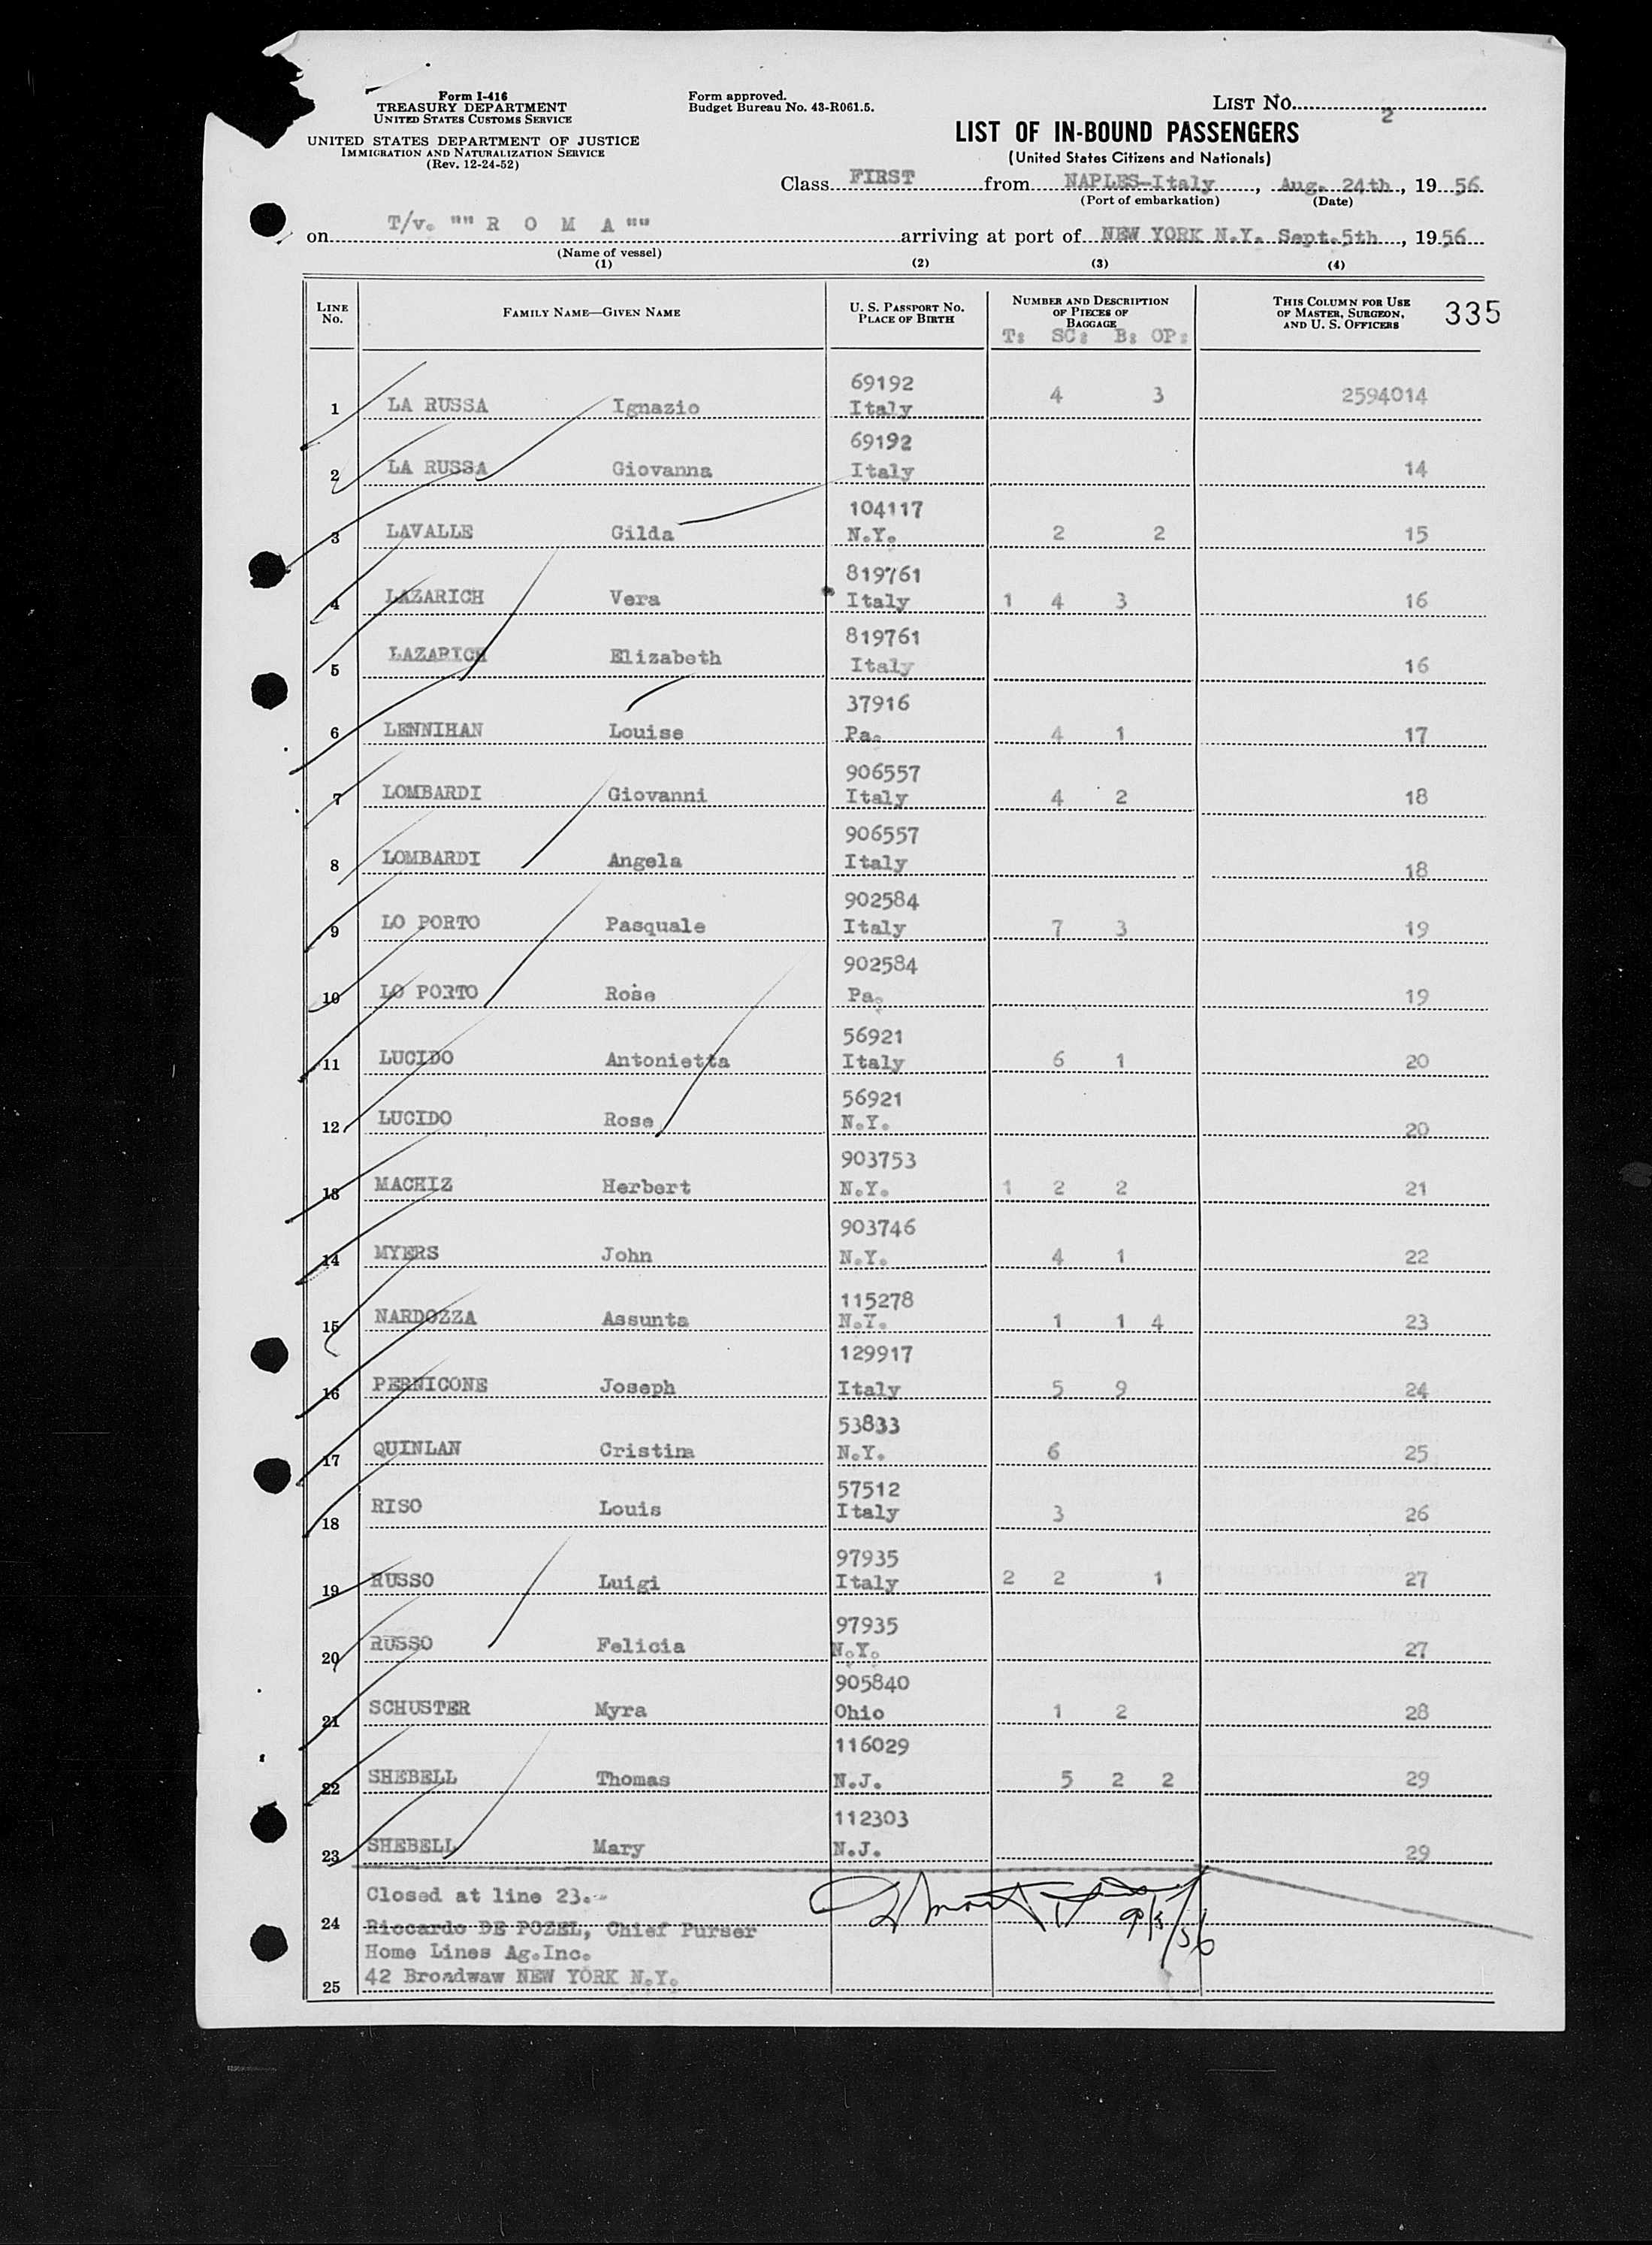 Form I-416
TREASURY DEPARTMENT
UNITED STATES CUSTOMS SERVICE
UNITED STATES DEPARTMENT OF JUSTICE
IMMIGRATION AND NATURALIZATION SERVICE
(Rev. 12-24-52)
Form approved.
Budget Bureau No. 43-R061.5.
LIST NO. 2
LIST OF IN-BOUND PASSENGERS
(United States Citizens and Nationals)
Class FIRST from NAPLES-Italy, Aug. 24th, 1956
(Port of embarkation) (Date)
on T/v. "" R O M A "" arriving at port of NEW YORK N.Y. Sept.5th, 1956
(Name of vessel)
(1) (2) (3) (4)
LINE No. FAMILY NAME—GIVEN NAME U. S. PASSPORT NO. PLACE OF BIRTH NUMBER AND DESCRIPTION OF PIECES OF BAGGAGE THIS COLUMN FOR USE OF MASTER, SURGEON, AND U. S. OFFICERS 335
T: SC: B: OP:
69192
1 LA RUSSA Ignazio Italy 4 3 2594014
69192
2 LA RUSSA Giovanna Italy 14
104117
3 LAVALLE Gilda N.Y. 2 2 15
819761
4 LAZARICH Vera Italy 1 4 3 16
819761
5 LAZARICH Elizabeth Italy 16
37916
6 LENNIHAN Louise Pa. 4 1 17
906557
7 LOMBARDI Giovanni Italy 4 2 18
906557
8 LOMBARDI Angela Italy 18
902584
9 LO PORTO Pasquale Italy 7 3 19
902584
10 LO PORTO Rose Pa. 19
56921
11 LUCIDO Antonietta Italy 6 1 20
56921
12 LUCIDO Rose N.Y. 20
903753
13 MACHIZ Herbert N.Y. 1 2 2 21
903746
14 MYERS John N.Y. 4 1 22
115278
15 NARDOZZA Assunta N.Y. 1 1 4 23
129917
16 PERNICONE Joseph Italy 5 9 24
53833
17 QUINLAN Cristina N.Y. 6 25
57512
18 RISO Louis Italy 3 26
97935
19 RUSSO Luigi Italy 2 2 1 27
97935
20 RUSSO Felicia N.Y. 27
905840
21 SCHUSTER Myra Ohio 1 2 28
116029
22 SHEBELL Thomas N.J. 5 2 2 29
112303
23 SHEBELL Mary N.J. 29
Closed at line 23.-
24 Riccardo DE POZEL, Chief Purser 9/5/56
Home Lines Ag.Inc.
25 42 Broadwaw NEW YORK N.Y.